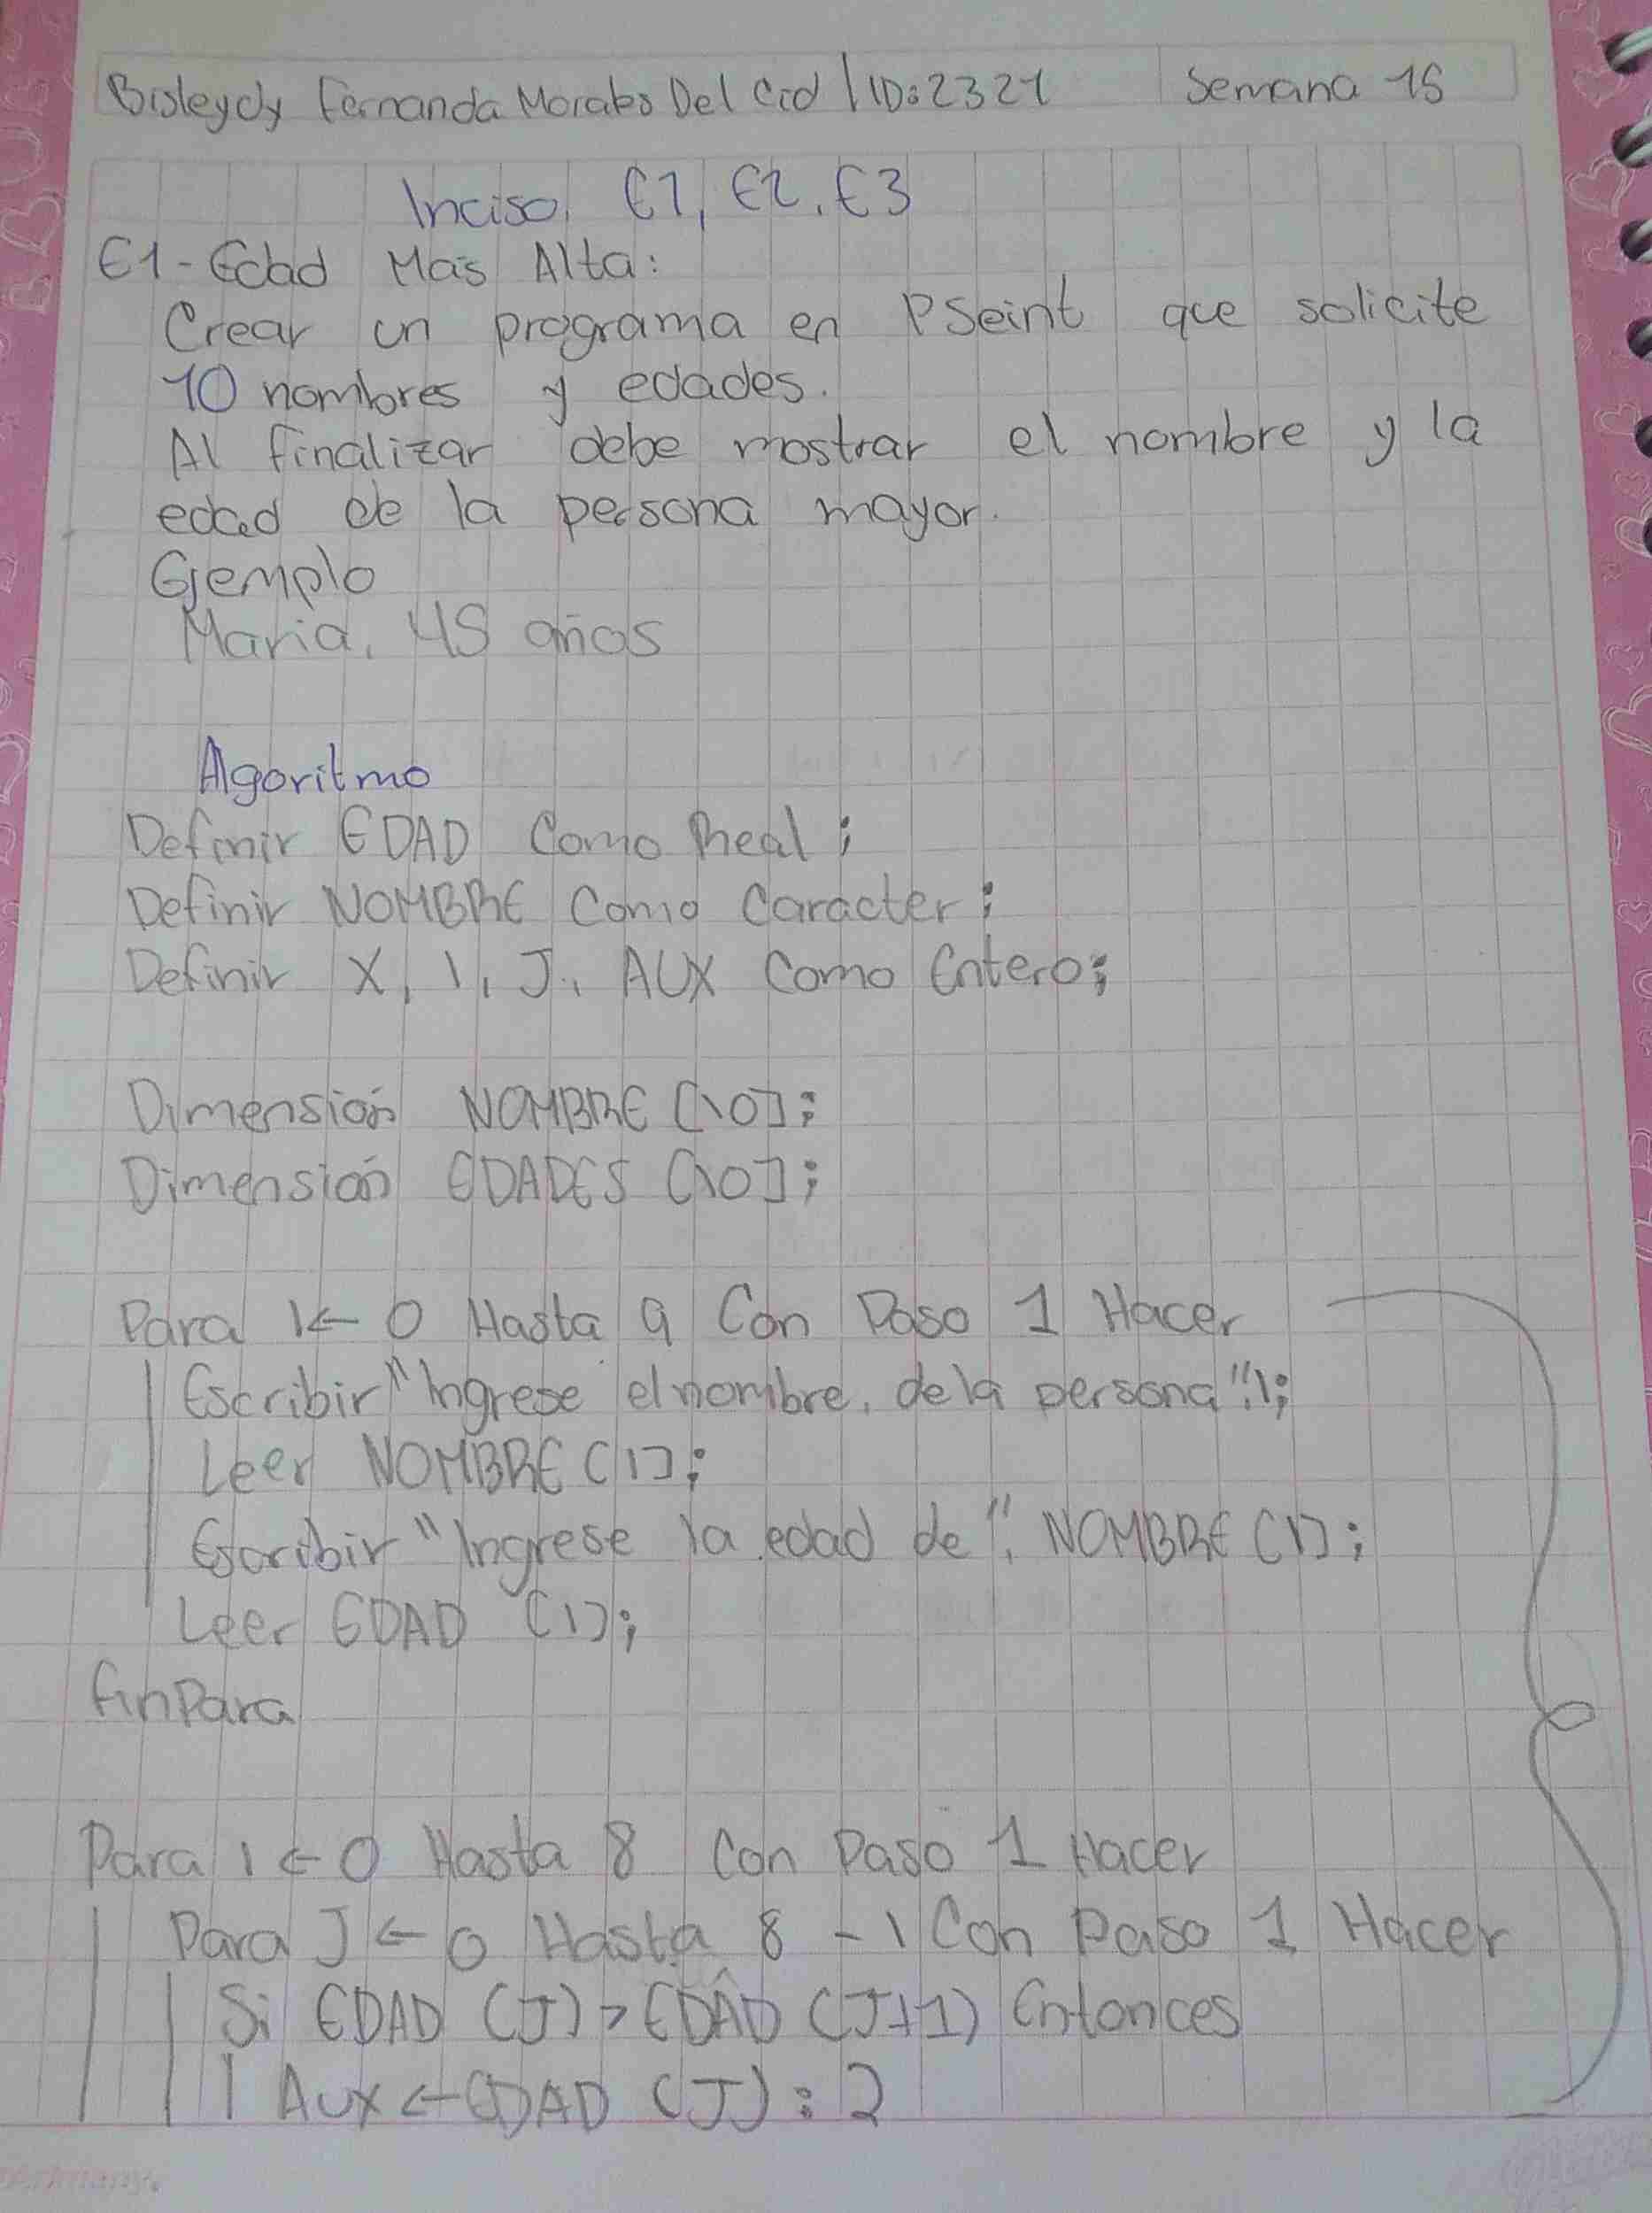 Bisleydy Fernanda Morales Del Cid | ID:2321 Semana 15
Inciso E1, E2, E3
E1- Edad Más Alta:
Crear un programa en PSeint que solicite
10 nombres y edades.
Al finalizar debe mostrar el nombre y la
edad de la persona mayor.
Ejemplo
Maria, 45 años
Algoritmo
Definir EDAD Como Real;
Definir NOMBRE Como Caracter;
Definir X, I, J, AUX Como Entero;
Dimensión NOMBRE [10];
Dimensión EDADES [10];
Para I← 0 Hasta 9 Con Paso 1 Hacer
Escribir "Ingrese el nombre, de la persona",1;
Leer NOMBRE [I];
Escribir "Ingrese la edad de", NOMBRE [I];
Leer EDAD [I];
FinPara
Para I ← 0 Hasta 8 Con Paso 1 Hacer
Para J ← 0 Hasta 8 - 1 Con Paso 1 Hacer
Si EDAD (J) > EDAD (J+1) Entonces
AUX ← EDAD (J); 2